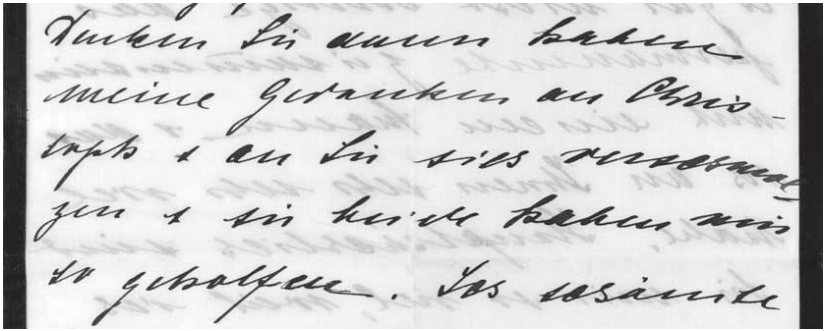 Denken Sie daran haben
meine Gedanken an Chris-
toph & an Sie sich verschmol-
zen & Sie beide haben mir
so geholfen. Das